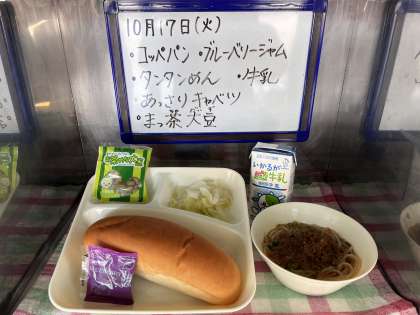 10月17日(火)
・コッペパン ・ブルーベリージャム
・タンタンめん ・牛乳
・あっさりキャベツ
・まっ茶大豆
いかるが
牛乳